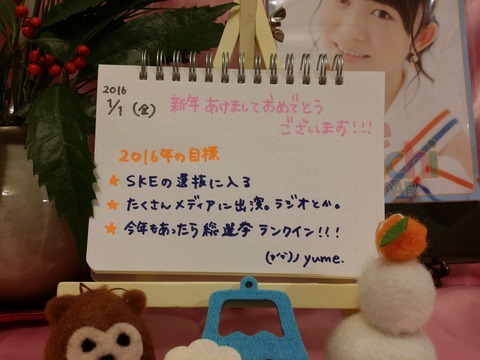 2016
1/1 (金)
新年 あけまして おめでとう
ございます!!!
2016年の目標
★ SKEの選抜に入る
★ たくさんメディアに出演。ラジオとか。
★ 今年もあったら総選挙ランクイン!!!
yume.